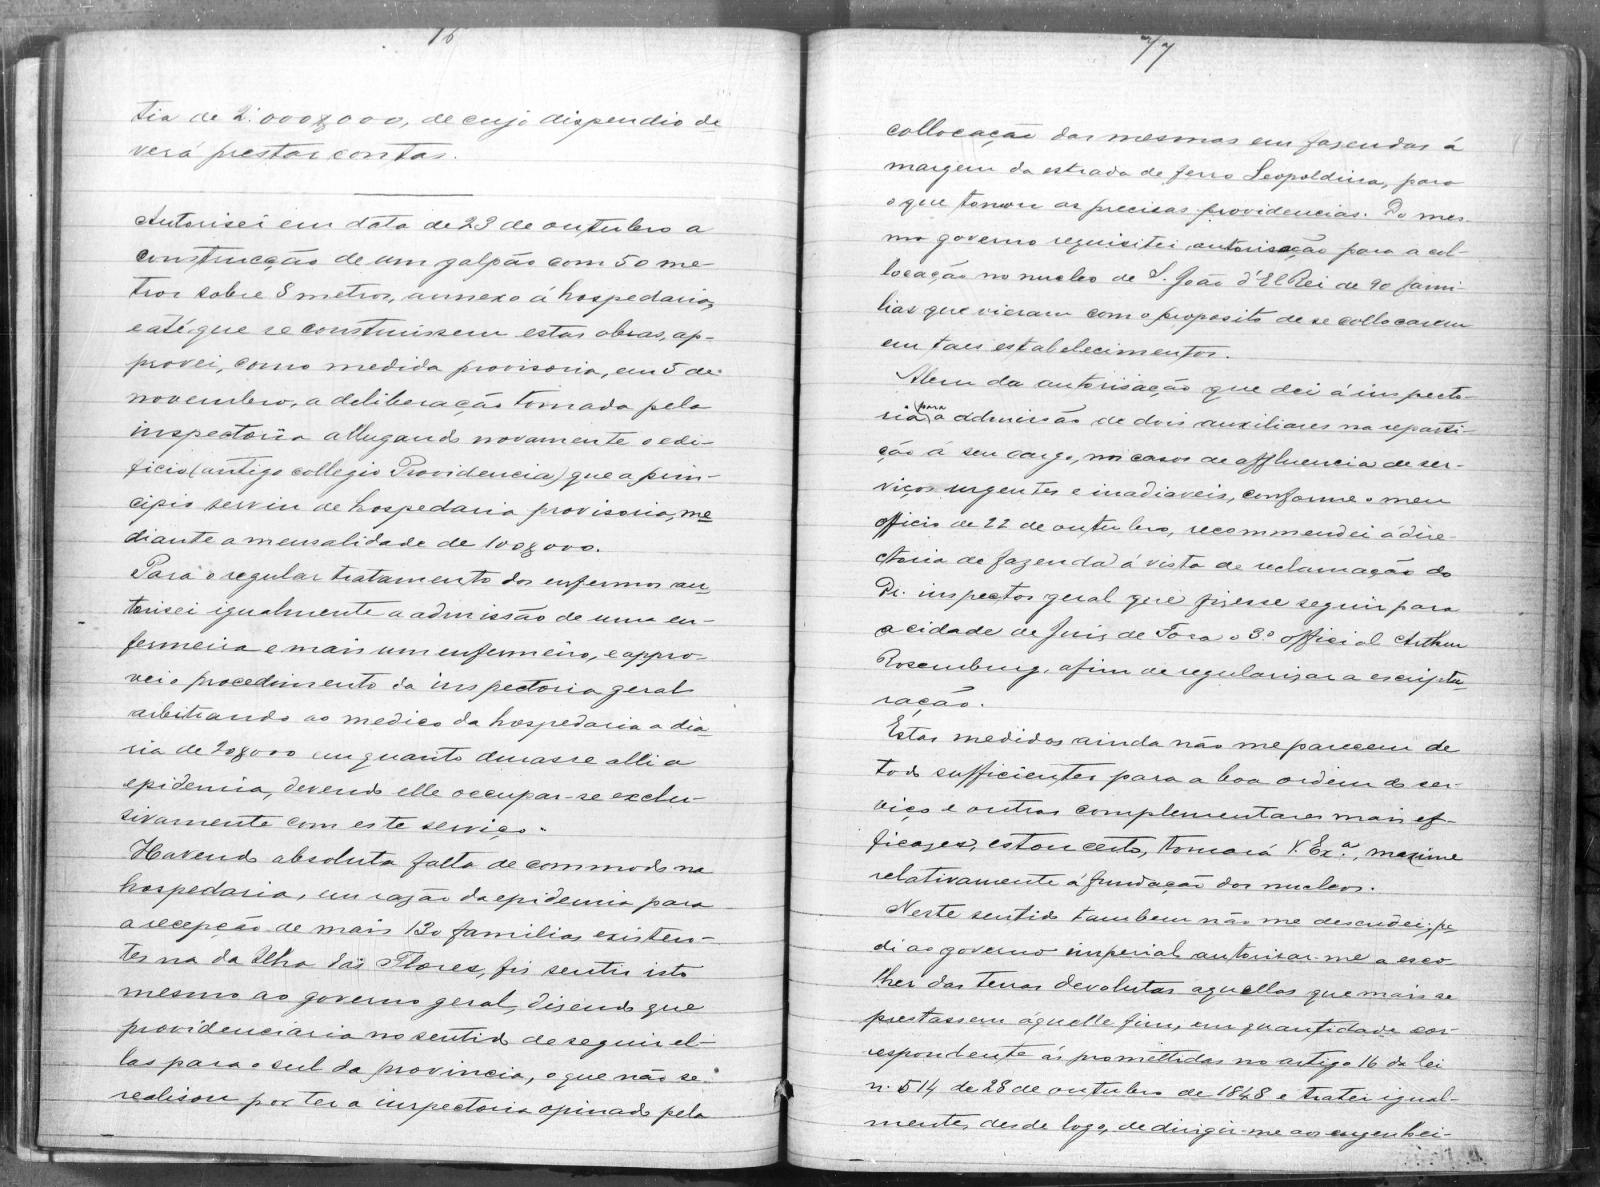 76
tia de 2:000$000, de cujo dispendio de
verá prestar contas.
Autorisei em data de 23 de outubro a
construcção de um galpão com 50 me-
tros sobre 8 metros, annexo á hospedaria,
e até que se construissem estas obras, ap-
provei, como medida provisoria, em 5 de
novembro, a deliberação tomada pela
inspectoria allugando novamente o edi-
ficio (antigo collegio Providencia) que a prin-
cipio serviu de hospedaria provisoria, me
diante a mensalidade de 100$000.
Para o regular tratamento dos enfermos au
torisei igualmente a admissão de uma en-
fermeira e mais um enfermeiro, e appro-
vei o procedimento da inspectoria geral
arbitrando ao medico da hospedaria a dia
ria de 20$000 em quanto durasse alli a
epidemia, devendo elle occupar-se exclu-
sivamente com este serviço.
Havendo absoluta falta de commodo na
hospedaria, em razão da epidemia para
a recepção de mais 130 familias existen-
tes na da Ilha das Flores, fiz sentir isto
mesmo ao governo geral, dizendo que
providenciaria no sentido de seguir el-
las para o sul da provincia, o que não se
realisou por ter a inspectoria opinado pela
77
collocação das mesmas em fazendas á
margem da estrada de ferro Leopoldina, para
o que tomou as precisas providencias. Do mes-
mo governo requisitei autorisação para a col-
locação no nucleo de S. João d'El Rei de 90 fami-
lias que vieram com o proposito de se collocarem
em taes estabelecimentos.
Alem da autorisação que dei á inspecto-
ria para a admissão de dois auxiliares na reparti-
ção á seu cargo, nos casos de affluencia de ser-
viços urgentes e inadiaveis, conforme o meu
officio de 22 de outubro, recommendei á dire-
ctoria de fazenda á vista de reclamação do
Dr. inspector geral que fizesse seguir para
a cidade de Juiz de Fora o 3º official Arthur
Rosemburg, afim de regularizar a escriptu-
ração.
Estas medidas ainda não me parecem de
todo sufficientes para a boa ordem do ser-
viço e outras complementares mais ef-
ficazes, estou certo, tomará V. Ex.ª, maxime
relativamente á fundação dos nucleos.
Neste sentido tambem não me descudei; pe
di ao governo imperial autorisar-me a esco-
lher das terras devolutas aquellas que mais se
prestassem áquelle fim, em quantidade cor-
respondente ás promettidas no artigo 16 da lei
n. 514 de 28 de outubro de 1848 e tratei igual-
mente, desde logo, de dirigir-me ao engenhei-